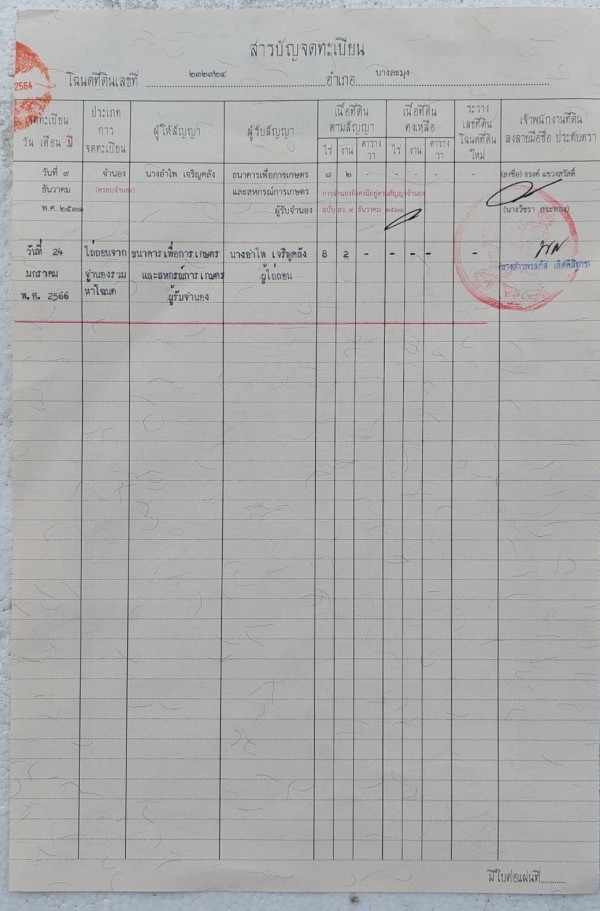 สารบัญจดทะเบียน
โฉนดที่ดินเลขที่ ๒๓๒๙๒๔ อำเภอ บางละมุง
2564
จดทะเบียน วัน เดือน ปี
ประเภท การ จดทะเบียน
ผู้ให้สัญญา
ผู้รับสัญญา
เนื้อที่ดิน ตามสัญญา
ไร่ งาน ตาราง วา
เนื้อที่ดิน คงเหลือ
ไร่ งาน ตาราง วา
ระวาง เลขที่ดิน โฉนดที่ดิน ใหม่
เจ้าพนักงานที่ดิน ลงลายมือชื่อ ประทับตรา
วันที่ ๙ จำนอง นางอำไพ เจริญคลัง ธนาคารเพื่อการเกษตร ๘ ๒ - - - - - (ลงชื่อ) ณรงค์ แขวงสวัสดิ์
ธันวาคม (ครอบจำนอง) และสหกรณ์การเกษตร การจำนองยังคงมีอยู่ตามสัญญาจำนอง
พ.ศ. ๒๕๓๑ ผู้รับจำนอง ฉบับ ลว. ๙ ธันวาคม ๒๕๓๑ (นางวัชรา
วันที่ 24 ไถ่ถอนจาก ธนาคารเพื่อการเกษตร นางอำไพ เจริญคลัง 8 2 - - - - -
มกราคม จำนองรวม และสหกรณ์การเกษตร ผู้ไถ่ถอน
พ.ศ. 2566 ห้าโฉนด ผู้รับจำนอง
มีใบต่อแผ่นที่